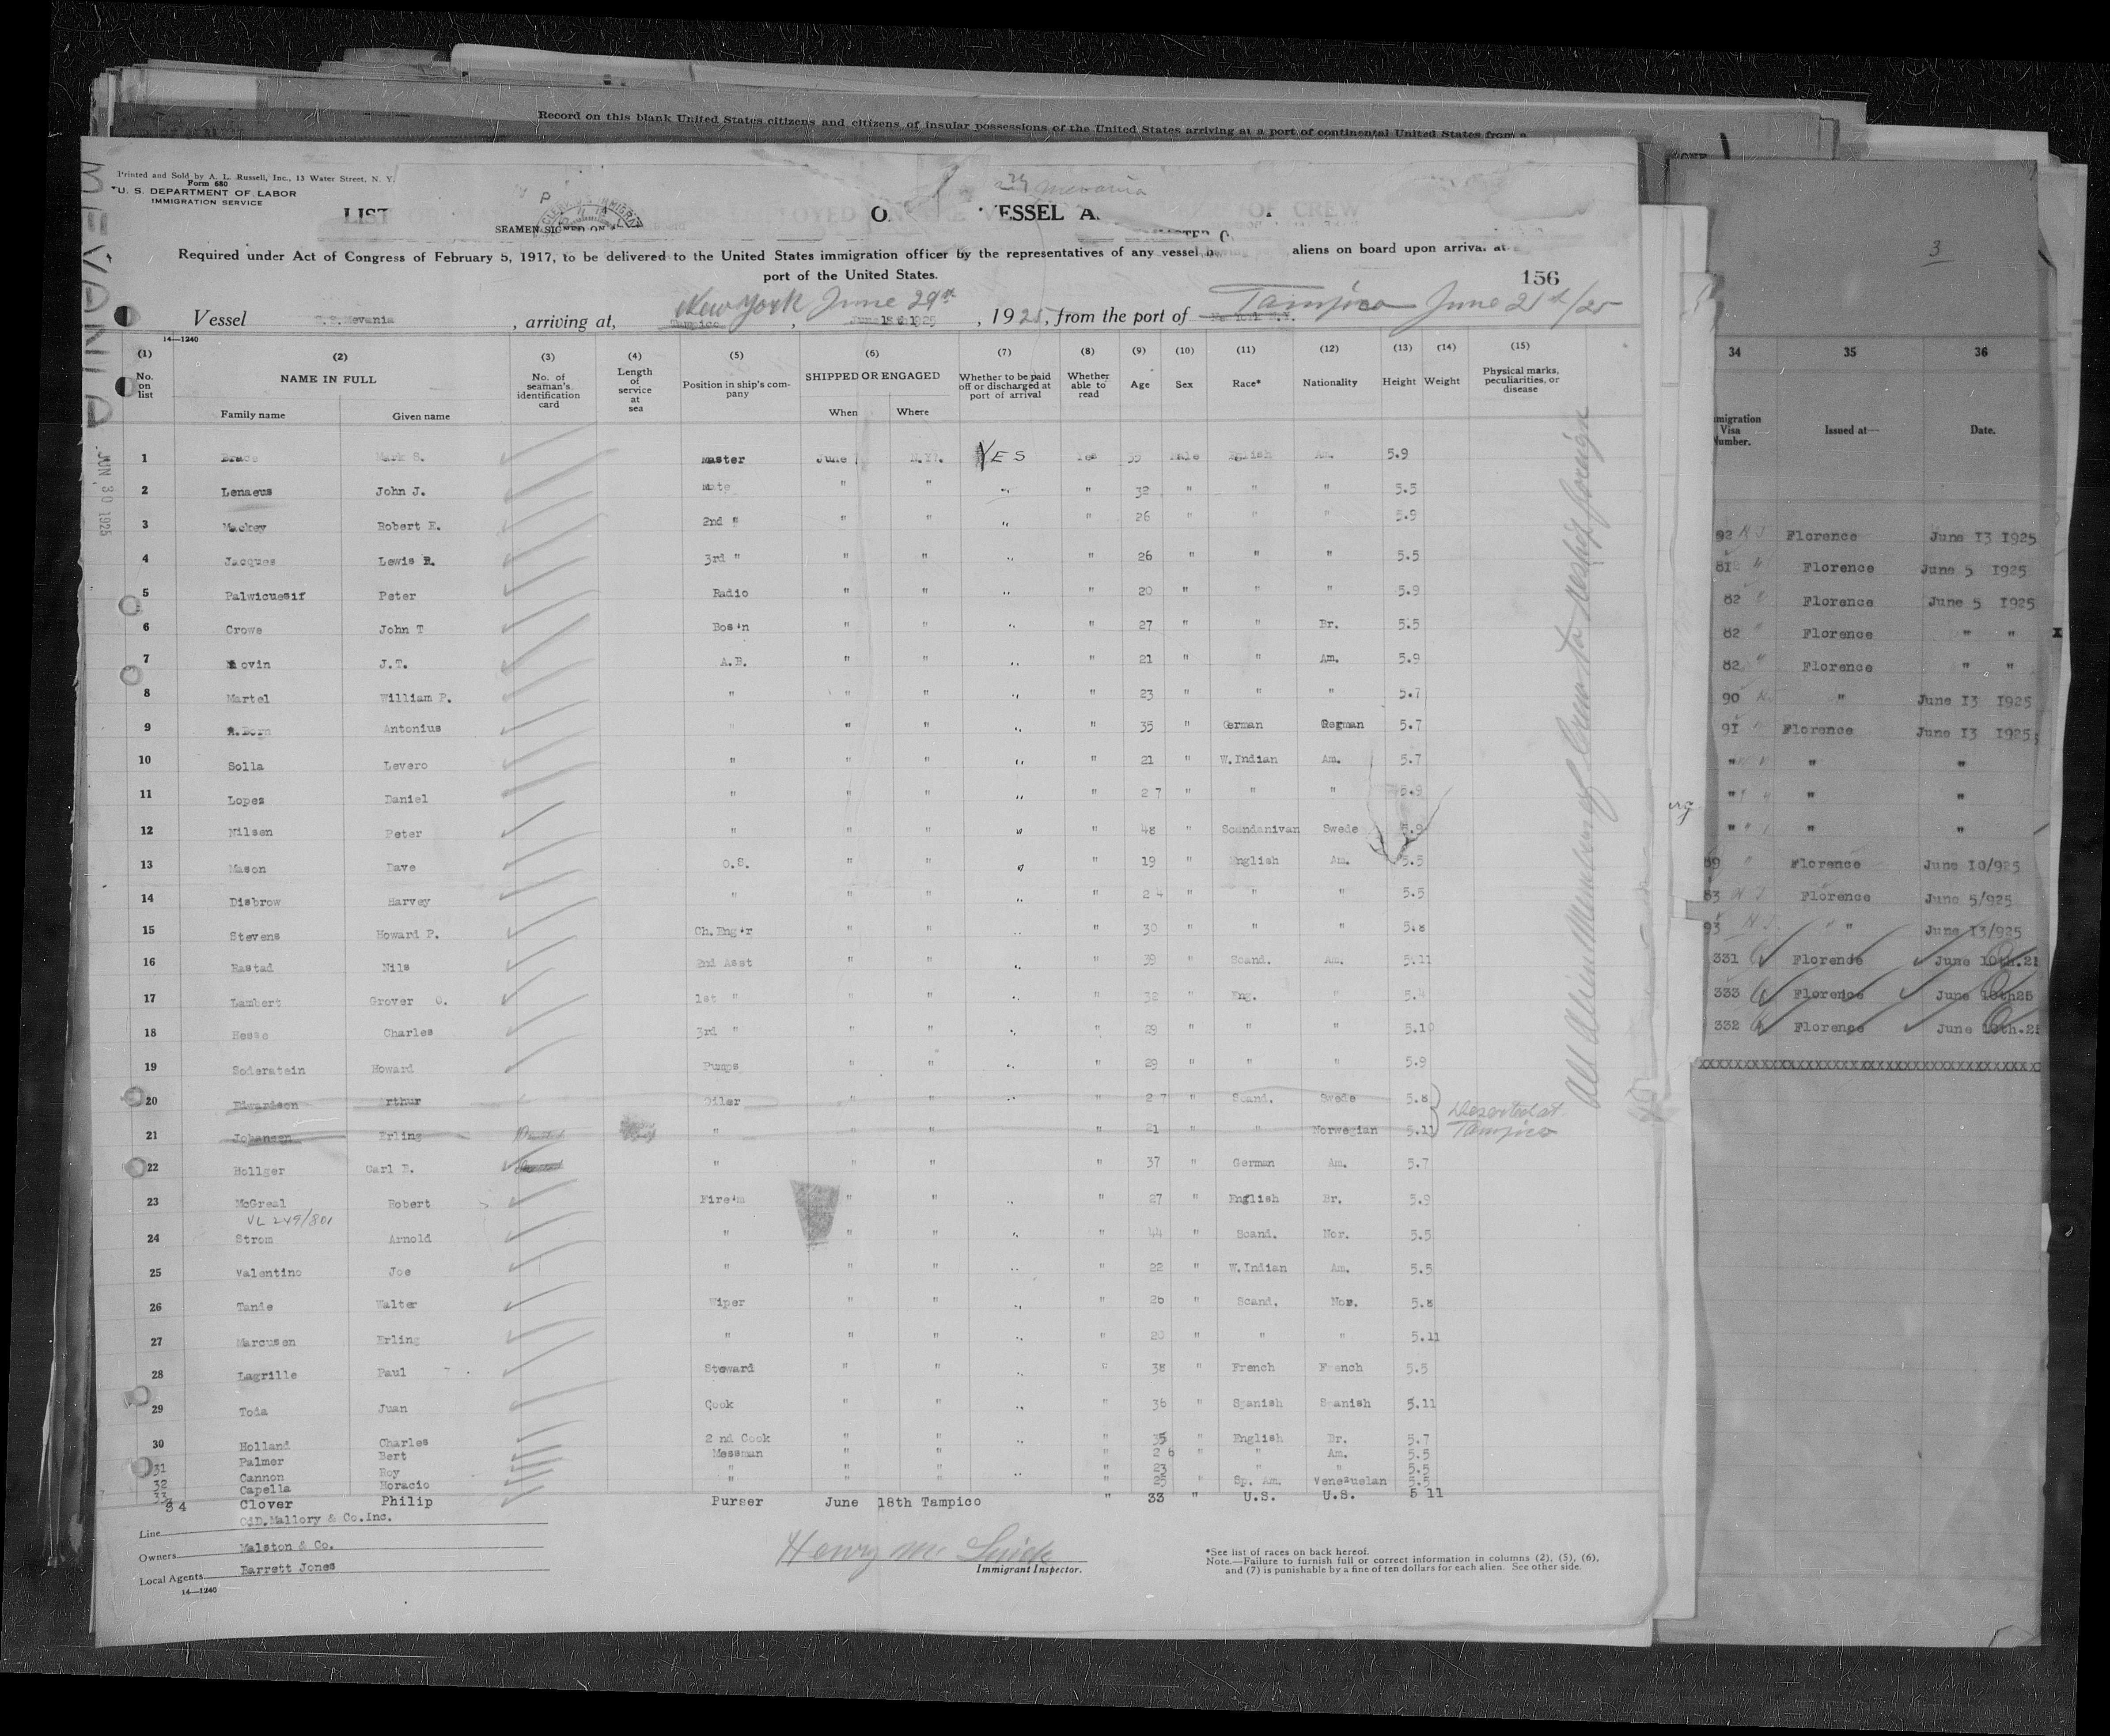 Record on this blank United States citizens and citizens of insular possessions of the United States arriving at a port of continental United States from a
Printed and Sold by A. L. Russell, Inc., 13 Water Street, N. Y.
Form 680
U. S. DEPARTMENT OF LABOR
IMMIGRATION SERVICE
LIST
VESSEL
SEAMEN SIGNED ON
Required under Act of Congress of February 5, 1917, to be delivered to the United States immigration officer by the representatives of any vessel aliens on board upon arrival at
port of the United States.
156
MEVANIA
JUN 30 1925
New York June 29th Tampico June 21st/25
Vessel S.S. Mevania, arriving at, Tampico, June 18th 1925, 1925, from the port of
14—1240
(1) (2) (3) (4) (5) (6) (7) (8) (9) (10) (11) (12) (13) (14) (15)
No. on list NAME IN FULL Family name Given name No. of seaman's identification card Length of service at sea Position in ship's company SHIPPED OR ENGAGED When Where Whether to be paid off or discharged at port of arrival Whether able to read Age Sex Race* Nationality Height Weight Physical marks, peculiarities, or disease
1 Brace Mark S. Master June N.Y. YES Yes 35 Male English Am. 5.9
2 Lenaeus John J. Mate " " " " 32 " " " 5.5
3 Mackey Robert E. 2nd " " " " " 26 " " " 5.9
4 Jacques Lewis R. 3rd " " " " " 26 " " " 5.5
5 Palwicuesif Peter Radio " " " " 20 " " " 5.9
6 Crowe John T Bos'n " " " " 27 " " Br. 5.5
7 Movin J.T. A.B. " " " " 21 " " Am. 5.9
8 Martel William P. " " " " " 23 " " " 5.7
9 Born Antonius " " " " " 35 " German German 5.7
10 Solla Levero " " " " " 21 " W.Indian Am. 5.7
11 Lopez Daniel " " " " " 27 " " " 5.9
12 Nilsen Peter " " " " " 48 " Scandanivan Swede 5.9
13 Mason Dave O.S. " " " " 19 " English Am. 5.5
14 Disbrow Harvey " " " " " 24 " " " 5.5
15 Stevens Howard P. Ch.Eng'r " " " " 30 " " " 5.8
16 Rastad Nils 2nd Asst " " " " 39 " Scand. Am. 5.11
17 Lambert Grover O. 1st " " " " " 32 " Eng. " 5.4
18 Hesse Charles 3rd " " " " " 29 " " " 5.10
19 Soderstein Howard Pumps " " " " 29 " " " 5.9
20 Edwardson Arthur Oiler " " " 27 " Scand. Swede 5.8
Deserted at
21 Johansen Erling " " " " 21 " " Norwegian 5.11
Tampico
22 Hollger Carl E. " " " " 37 " German Am. 5.7
23 McGreal Robert Fire'm " " " " 27 " English Br. 5.9
VL 249/801
24 Strom Arnold " " " " " 44 " Scand. Nor. 5.5
25 Valentino Joe " " " " " 22 " W.Indian Am. 5.5
26 Tande Walter Wiper " " " " 26 " Scand. Nor. 5.8
27 Marcusen Erling " " " " " 20 " " " 5.11
28 Lagrille Paul Steward " " " " 38 " French French 5.5
29 Toda Juan Cook " " " " 36 " Spanish Spanish 5.11
30 Holland Charles 2 nd Cook " " " " 35 " English Br. 5.7
31 Palmer Bert Messman " " " 26 " " Am. 5.5
32 Cannon Roy " " " " 23 " " 5.5
33 Capella Horacio " " " " 25 " Sp. Am. Venezuelan 5.5
34 Clover Philip Purser June 18th Tampico " 33 " U.S. U.S. 5 11
All Alien Members of Crew to reship foreign
Line C.D.Mallory & Co.Inc.
Owners Malston & Co.
Local Agents Barrett Jones
14—1240
Immigrant Inspector.
*See list of races on back hereof.
Note.—Failure to furnish full or correct information in columns (2), (5), (6),
and (7) is punishable by a fine of ten dollars for each alien. See other side.
3
34 35 36
Visa Number. Issued at— Date.
92 Florence June 13 1925
81 " Florence June 5 1925
82 " Florence June 5 1925
82 " Florence " "
82 " Florence " "
90 " June 13 1925
91 Florence June 13 1925
" " "
" " "
" " "
89 " Florence June 10/925
83 Florence June 5/925
93 " " June 13/925
331 Florence June 10th.25
333 Florence June 10th25
332 Florence June 10th.25